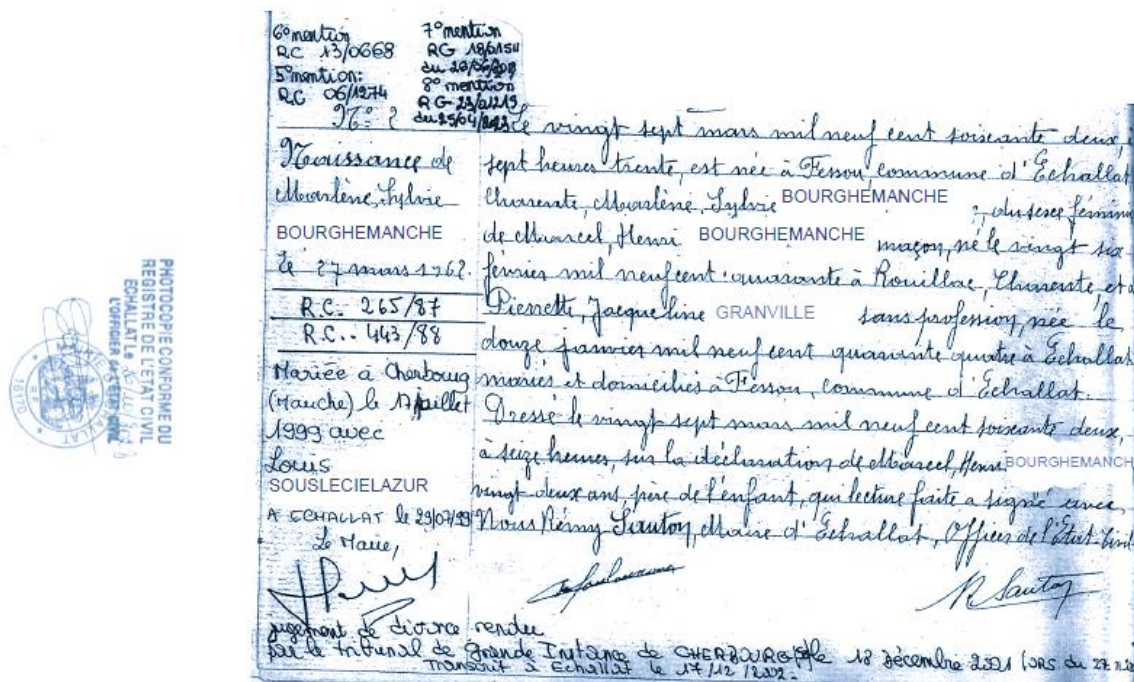 6° mention
RC 13/0668
5° mention:
RC 06/1274
7° mention
RG 18/6154
du
8° mention
RG
du 25/04/
N° 2
Naissance de
Marlène, Sylvie
BOURGHEMANCHE
le 27 mars 1962.
R.C. 265/87
R.C. 443/88
Mariée à Cherbourg
(Manche) le 17 juillet
1999 avec
Louis
SOUSLECIELAZUR
A ECHALLAT le 29/07/99
Le Maire,
Le vingt sept mars mil neuf cent soixante deux à
sept heures trente, est née à Fesson, commune d'Echallat
Charente, Marlène, Sylvie BOURGHEMANCHE , du sexe féminin
de Marcel, Henri BOURGHEMANCHE maçon, né le vingt six
février mil neuf cent quarante à Rouillac, Charente, et
Pierrette, Jacqueline GRANVILLE sans profession, née le
douze janvier mil neuf cent quarante quatre à Echallat
mariés et domiciliés à Fesson, commune d'Echallat.
Dressé le vingt sept mars mil neuf cent soixante deux,
à seize heures, sur la déclaration de Marcel, Henri BOURGHEMANCH
vingt deux ans, père de l'enfant, qui lecture faite a signé avec
Nous Rémy Sauton, Maire d'Echallat, Officier de l'Etat-Civil
R Sauton
jugement de divorce rendu
par le tribunal de Grande Instance de CHERBOURG le 18 décembre
transcrit à Echallat le 17/12/
PHOTOCOPIE CONFORME DU
REGISTRE DE L'ETAT CIVIL
ECHALLAT Le
L'OFFICIER DE L'ETAT CIVIL
MAIRIE ECHALLAT
R F
16170